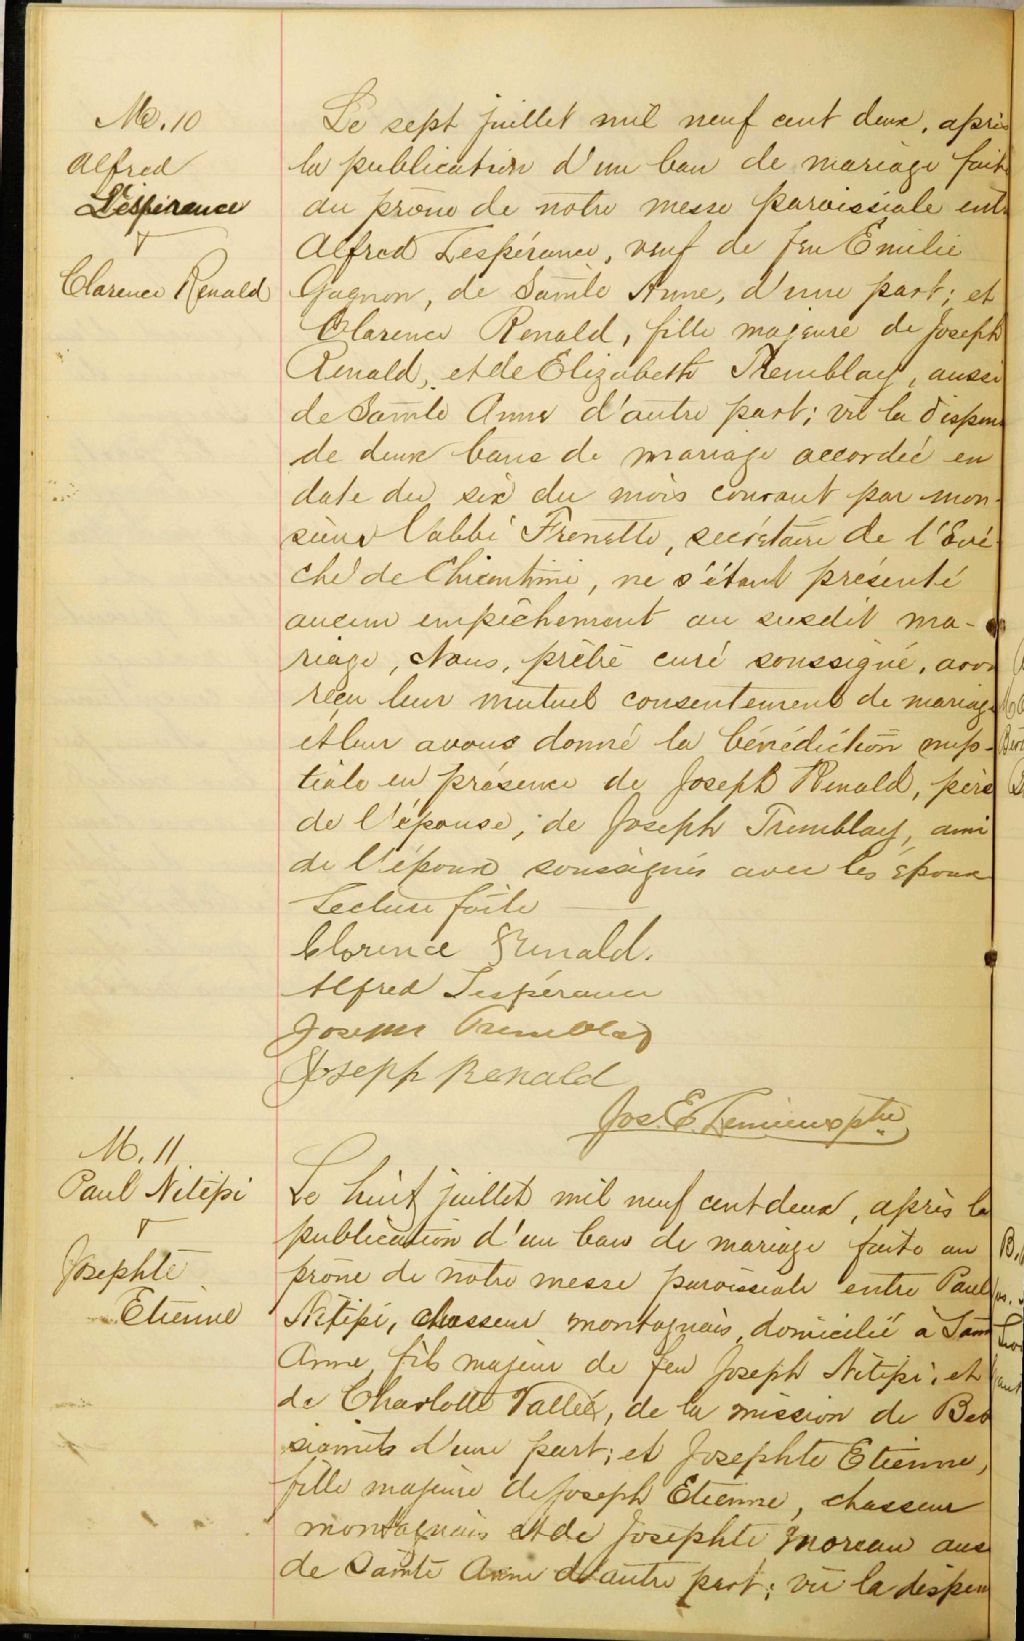 M. 10
Alfred
Lespérance
&
Clarence Renald
Le sept juillet mil neuf cent deux, après
la publication d'un ban de mariage faite
au prône de notre messe paroissiale entr
Alfred Lespérance, veuf de feu Emilie
Gagnon, de Sainte Anne, d'une part; et
Clarence Renald, fille majeure de Joseph
Renald, et de Elizabeth Tremblay, aussi
de Sainte Anne d'autre part; vu la dispens
de deux bans de mariage accordée en
date du six du mois courant par mon-
sieur l'abbé Frenette, secrétaire de l'Evê-
ché de Chicoutimi, ne s'étant présenté
aucun empêchement au susdit ma-
riage, Nous, prêtre curé soussigné, avon
reçu leur mutuel consentement de mariage
et leur avons donné la bénédiction nup-
tiale en présence de Joseph Renald, père
de l'épouse, de Joseph Tremblay, ami
de l'époux soussignés avec les époux
Lecture faite
Clorence Renald.
Alfred Lespérance
Joseph Tremblay
Joseph Renald
Jos. E. Lemieux ptre
M. 11
Paul Nitepi
&
Josephte
Etienne
Le huit juillet mil neuf cent deux, après la
publication d'un ban de mariage faite au
prône de notre messe paroissiale entre Paul
Nitipi, chasseur montagnais, domicilié à Saint
Anne, fils majeur de feu Joseph Nitipi, et
de Charlotte Vallée, de la mission de Bet
siamits d'une part; et Josephte Etienne,
fille majeure de Joseph Etienne, chasseur
montagnais et de Josephte Moreau auss
de Sainte Anne d'autre part; vu la dispen